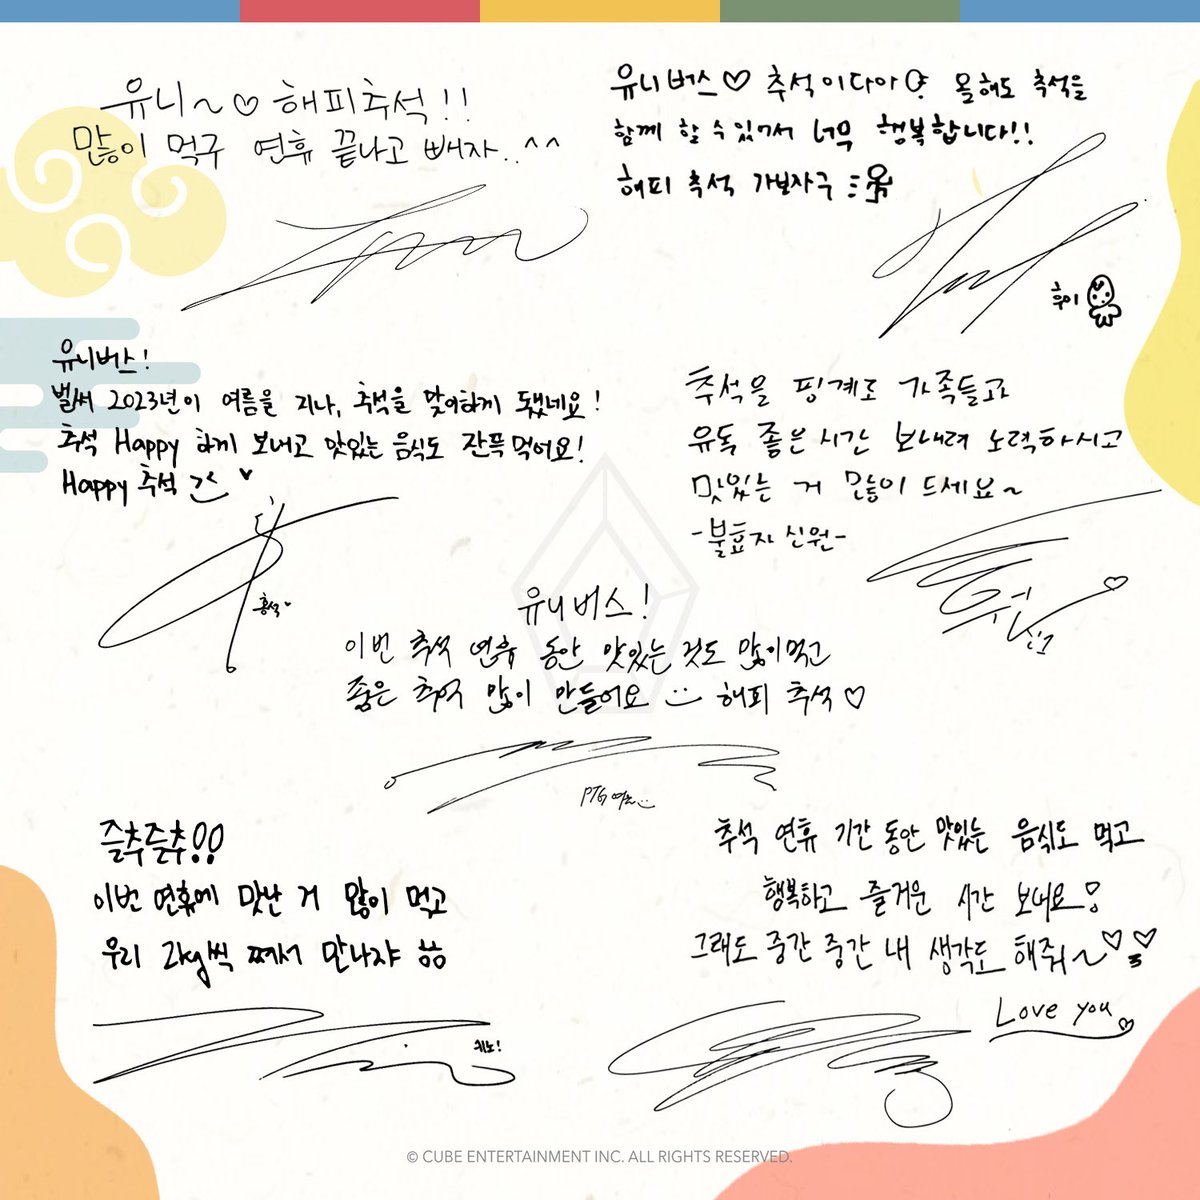 유니~♡ 해피추석!!
많이 먹구 연휴 끝나고 빼자..^^
유니버스♡ 추석이다아 올해도 추석을
함께 할 수 있어서 너무 행복합니다!!
해피 추석 가보자구
후이
유니버스!
벌써 2023년이 여름을 지나, 추석을 맞이하게 됐네요!
추석 Happy 하게 보내고 맛있는 음식도 잔뜩 먹어요!
Happy 추석
홍석
추석을 핑계로 가족들과
유독 좋은 시간 보내려 노력하시고
맛있는 거 많이 드세요~
-불효자 신원-
유니버스!
이번 추석 연휴 동안 맛있는 것도 많이 먹고
좋은 추억 많이 만들어요 :) 해피 추석♡
PTG 여원
즐추즐추!!
이번 연휴에 맛난 거 많이 먹고
우리 2kg씩 쪄서 만나자 ㅎㅎ
키노!
추석 연휴 기간 동안 맛있는 음식도 먹고
행복하고 즐거운 시간 보내요!
그래도 중간 중간 내 생각도 해줘~♡♡
Love you
© CUBE ENTERTAINMENT INC. ALL RIGHTS RESERVED.